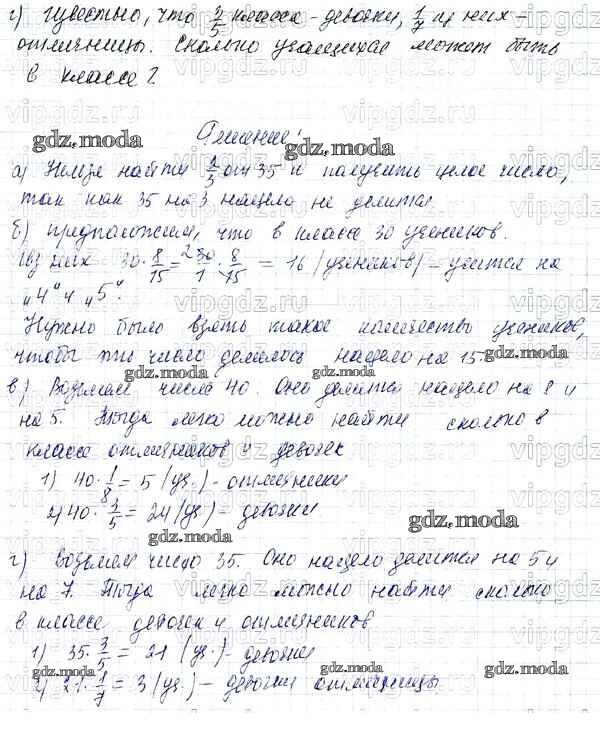 г) Известно, что 3/5 класса - девочки, 1/7 из них -
отличницы. Сколько учащихся может быть
в классе?
Решение:
а) Нельзя найти 2/3 от 35 и получить целое число,
так как 35 на 3 нацело не делится.
б) Предположим, что в классе 30 учеников.
Из них 30 · 8/15 = 30/1 · 8/15 = 16 (учеников) - учится на
„4" и „5".
Нужно было взять такое количество учеников,
чтобы это число делилось нацело на 15.
в) Возьмем число 40. Оно делится нацело на 8 и
на 5. Тогда легко можно найти сколько в
классе отличников и девочек
1) 40 · 1/8 = 5 (уч.) - отличники
2) 40 · 3/5 = 24 (уч.) - девочки
г) Возьмем число 35. Оно нацело делится на 5 и
на 7. Тогда легко можно найти сколько
в классе девочек и отличников
1) 35 · 3/5 = 21 (уч.) - девочки
2) 21 · 1/7 = 3 (уч.) - девочки отличницы.
gdz.moda
gdz.moda
gdz.moda
gdz.moda
gdz.moda
gdz.moda
gdz.moda
gdz.moda
gdz.moda
vipgdz.ru